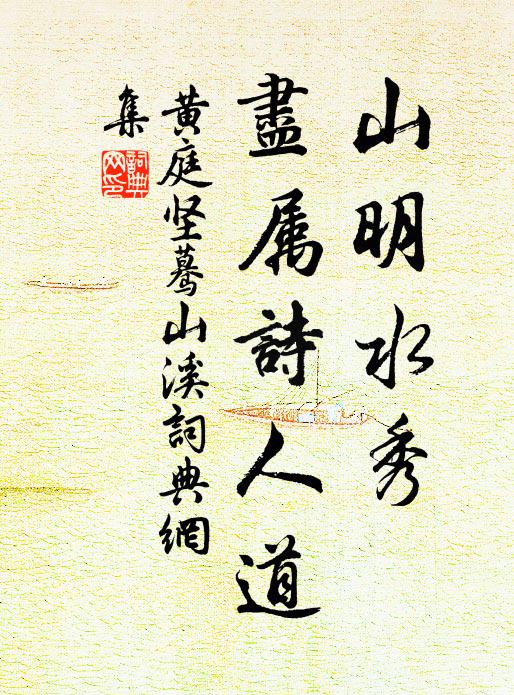 山明水秀
盡属詩人道
黄庭坚驀山溪詞典網
集
詞典
网印